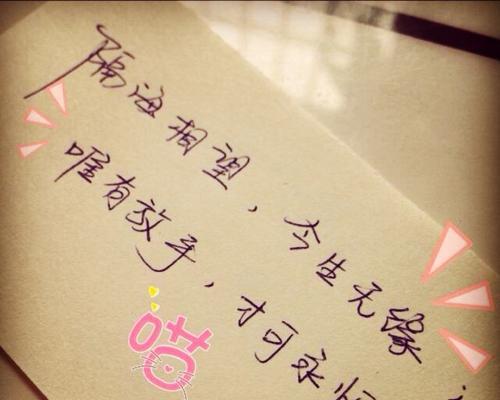 隔海相望，今生无缘
唯有放手，才可永恒
喵